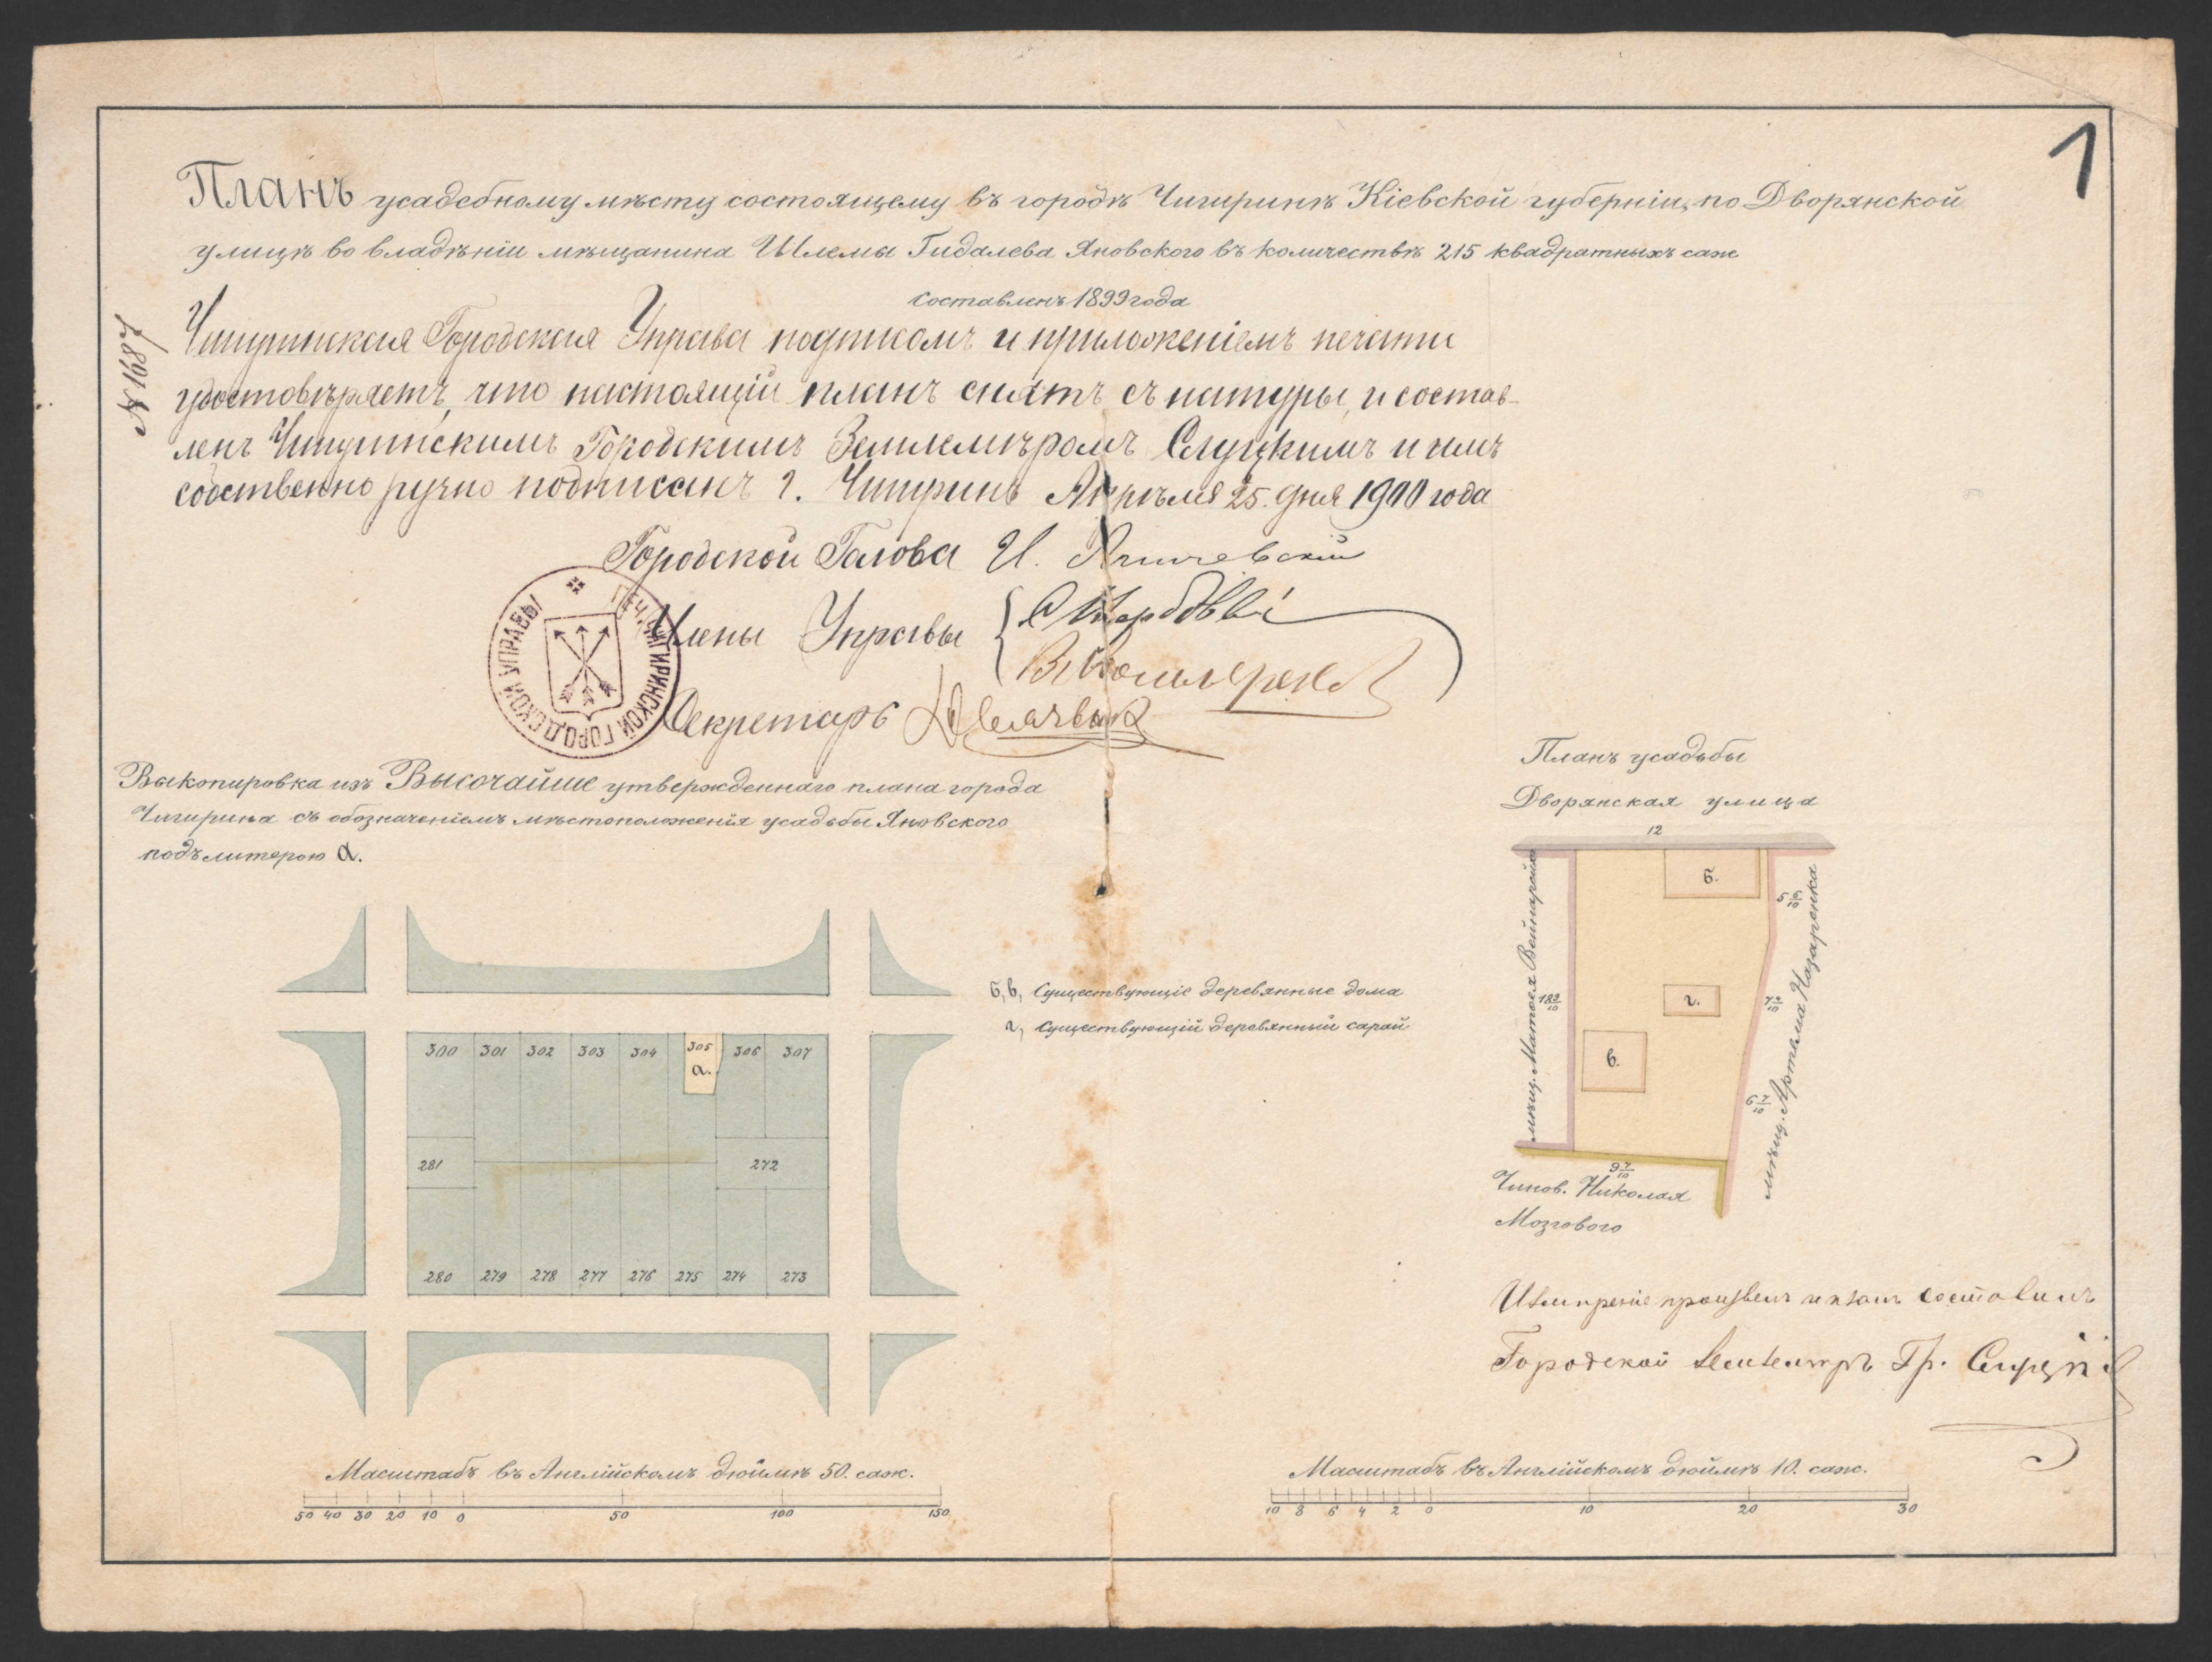 1
Планъ усадебному мѣсту состоящему въ городѣ Чигиринѣ Кіевской губерніи, по Дворянской
улицѣ во владѣніи мѣщанина Шлемы Гидалева Яновского въ количествѣ 215 квадратныхъ саж
составленъ 1899 года
№ 1887
Чигиринская Городская Управа подписомъ и приложеніемъ печати
удостовѣряетъ, что настоящій планъ снятъ съ натуры, и состав-
ленъ Чигиринскимъ Городскимъ Землемѣромъ Слуцкимъ и имъ
собственно ручно подписанъ г. Чигиринъ Апрѣля 25 дня 1900 года
Городской Голова И.
Члены Управы
Секретарь
ПЕЧ. ЧИГИРИНСКОЙ ГОРОДСКОЙ УПРАВЫ
Выкопировка изъ Высочайше утвержденнаго плана города
Чигирина съ обозначеніемъ мѣстоположенія усадьбы Яновского
подъ литерою а.
300 301 302 303 304 305 306 307
а.
281 272
280 279 278 277 276 275 274 273
б, в, Существующіе деревянные дома
г, Существующій деревянный сарай
Планъ усадьбы
Дворянская улица
12
б.
5 6/10
г.
в.
6 7/10
мѣщ. Артема Назаренка
9 7/10
Чинов. Николая
Мозгового
Измѣреніе произвелъ и планъ составилъ
Городской Землемѣръ Гр. Слуцкій
Масштабъ въ Англійскомъ дюймѣ 50. саж.
50 40 30 20 10 0 50 100 150
Масштабъ въ Англійскомъ дюймѣ 10. саж.
10 8 6 4 2 0 10 20 30